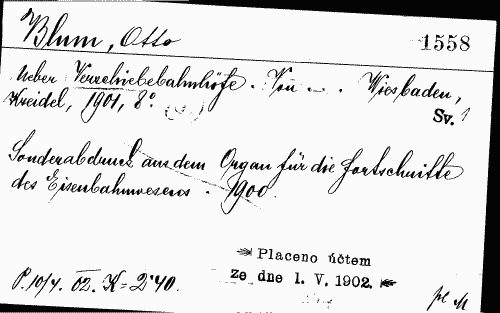 Blum, Otto
1558
Ueber Verschiebebahnhöfe. Von — . Wiesbaden,
Kreidel, 1901, 8°.
Sv. 1
Sonderabdruck aus dem Organ für die Fortschritte
des Eisenbahnwesens . 1900.
Placeno účtem
ze dne 1. V. 1902.
P. 10/4. 02. K = 2·40.